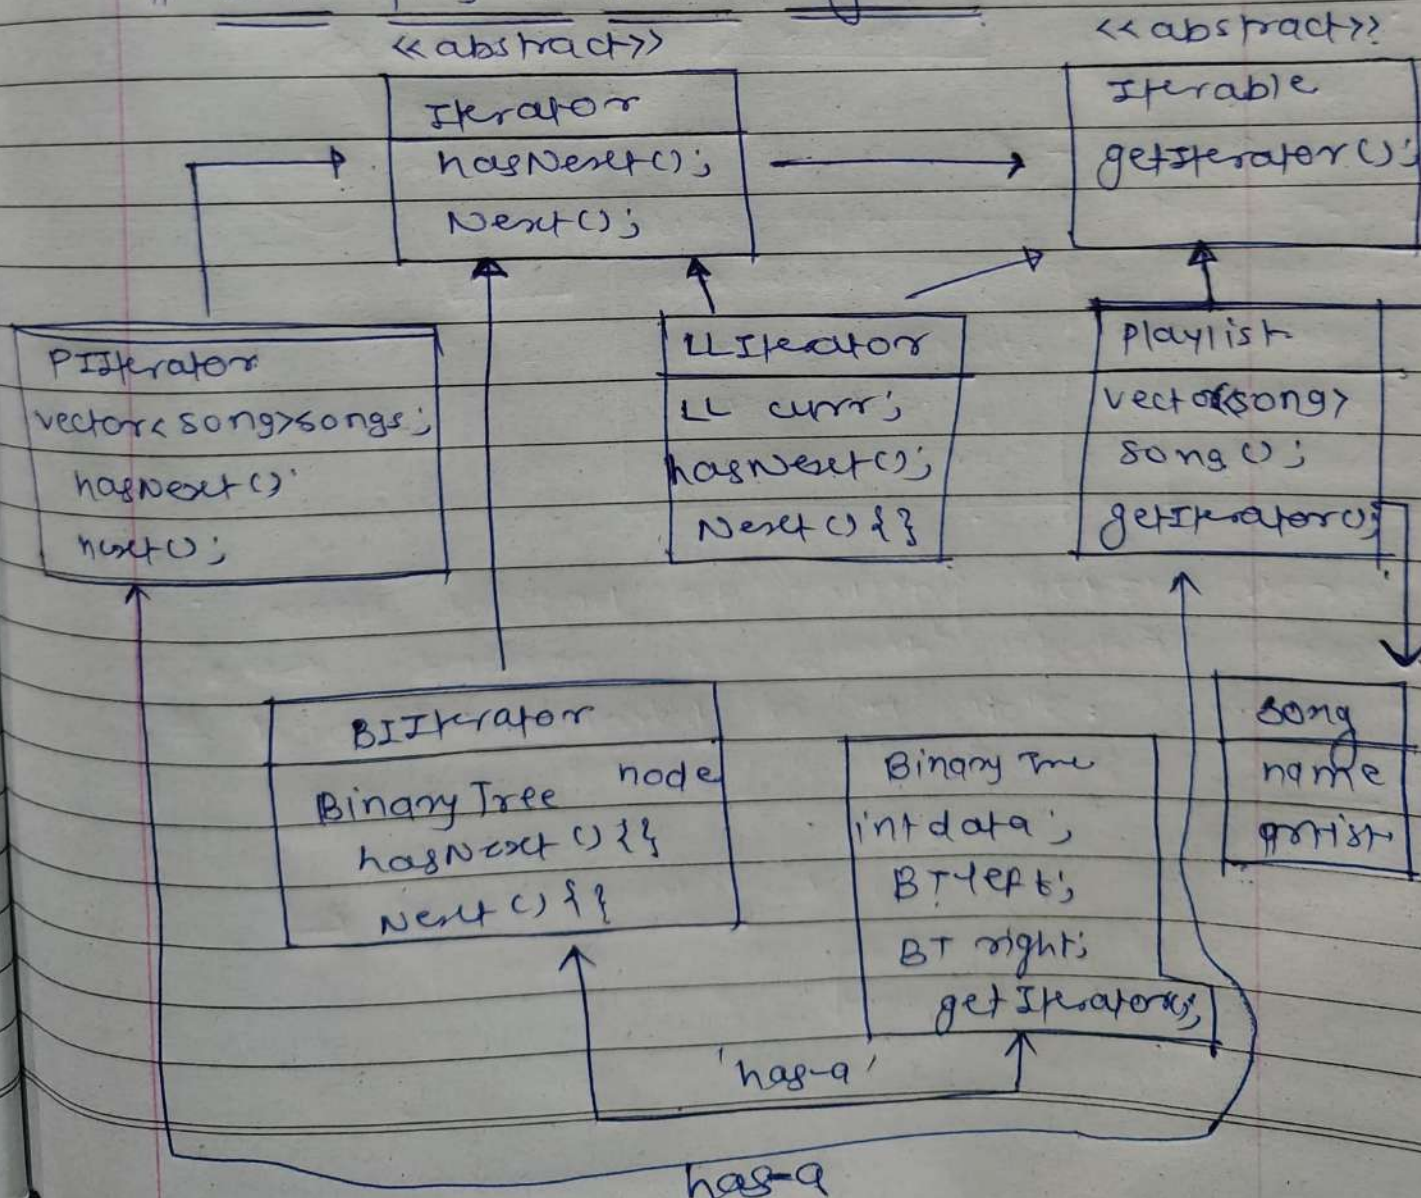 <<abstract>>
Iterator
hasNext();
Next();
<<abstract>>
Iterable
getIterator();
PIIterator
vector<song>songs;
hasNext()
next();
LLIterator
LL curr;
hasNext();
Next(){}
Playlist
vector<song>
song();
getIterator();
BIIterator
Binary Tree node
hasNext(){}
Next(){}
Binary Tree
int data;
BT left;
BT right;
getIterator();
song
name
artist
'has-a'
has-a